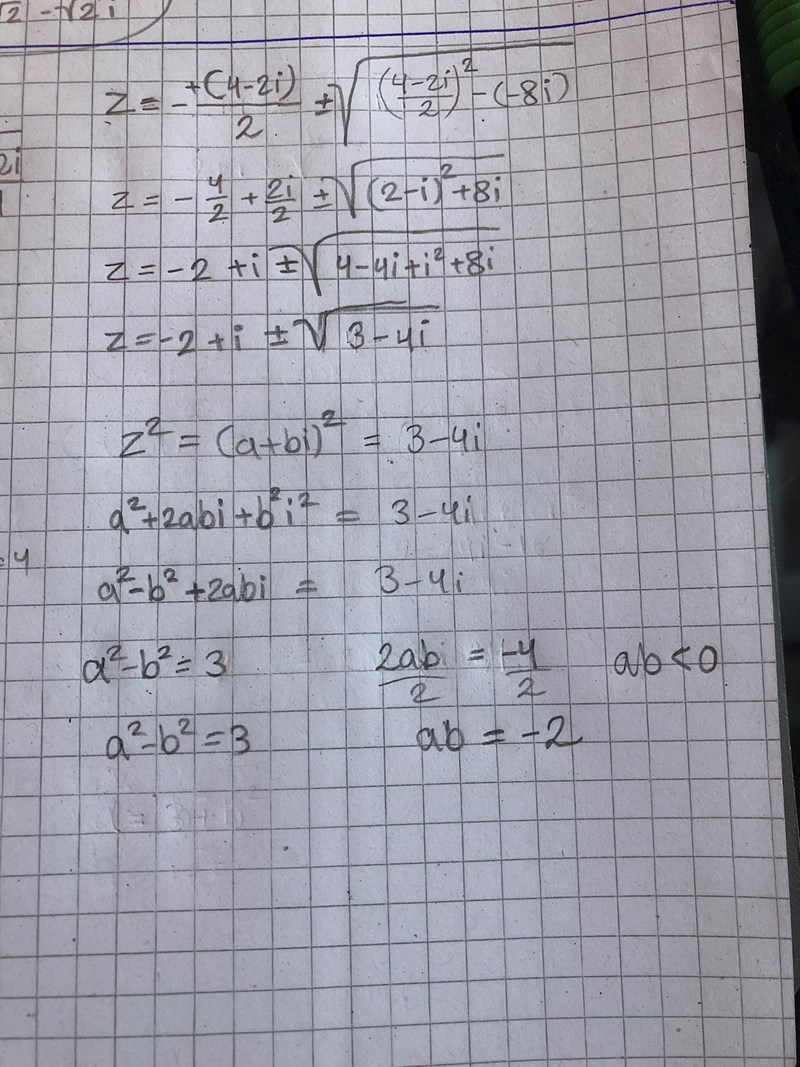 √2 - √2 i
z = -+(4-2i)/2 ± √((4-2i)/2)² - (-8i)
2i
z = - 4/2 + 2i/2 ± √(2-i)² + 8i
z = -2 + i ± √4-4i+i²+8i
z = -2 + i ± √3-4i
z² = (a+bi)² = 3-4i
a²+2abi+b²i² = 3-4i
=4
a²-b²+2abi = 3-4i
a²-b² = 3 2ab/2 = -4/2 ab<0
a²-b² = 3 ab = -2